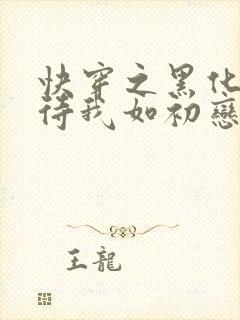 快穿之黑化
待我如初戀
王龍